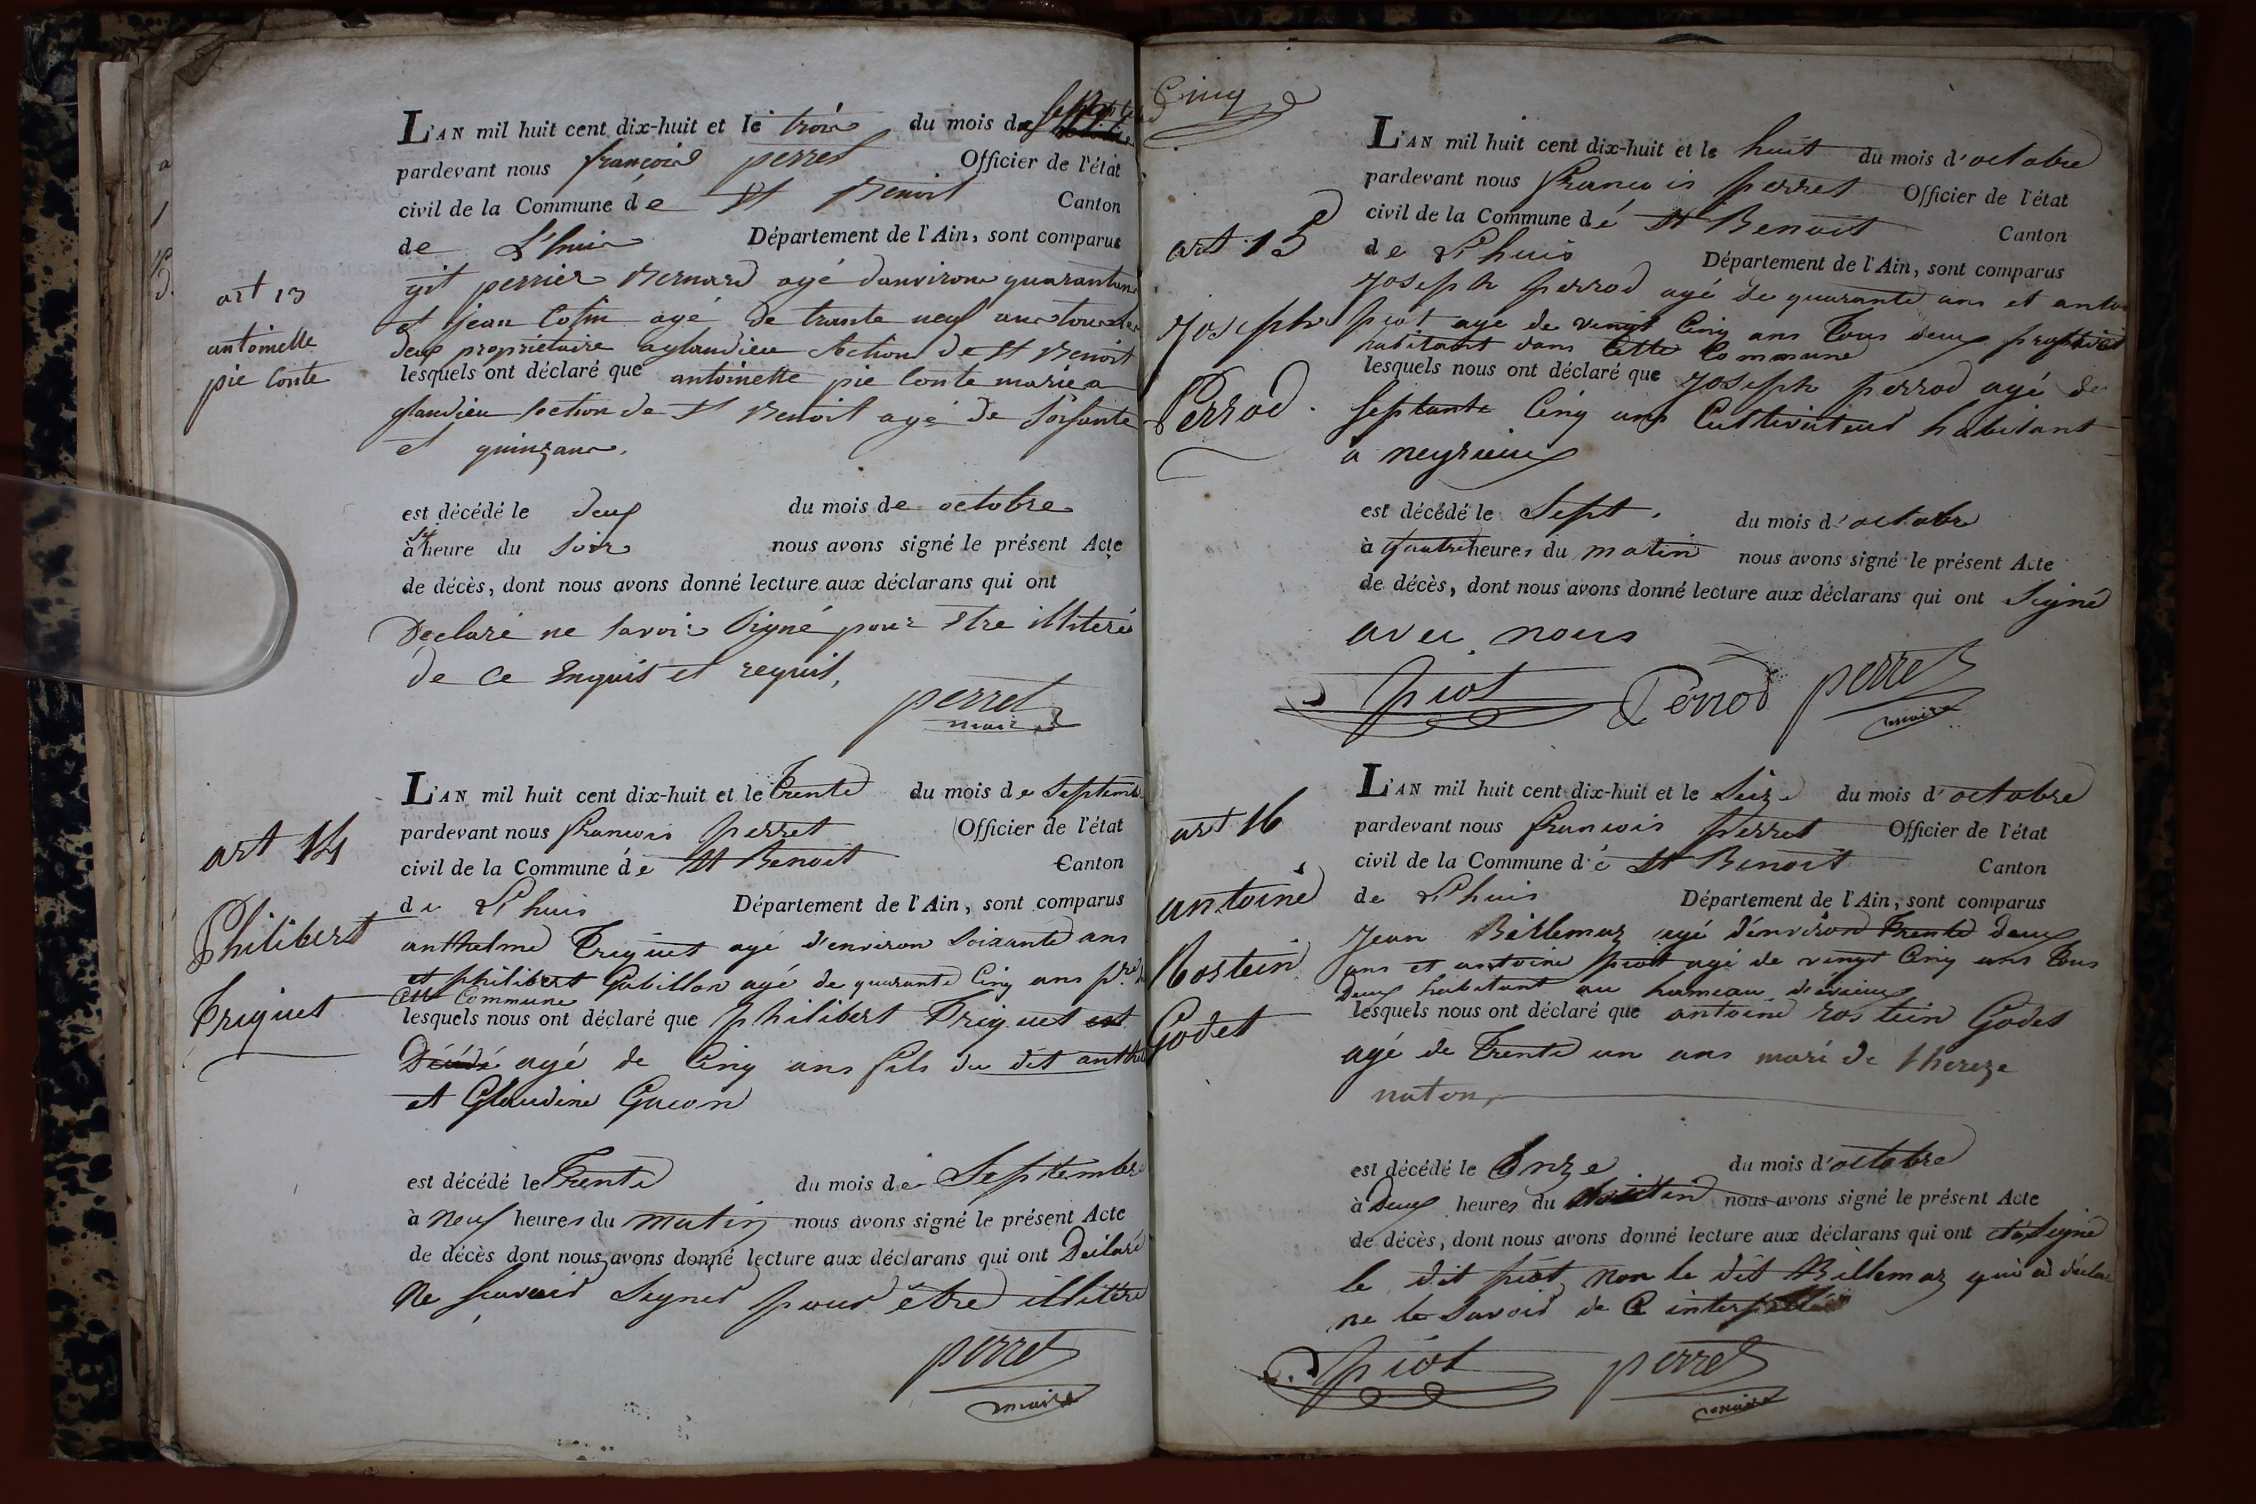 L'AN mil huit cent dix-huit et le trois du mois de
pardevant nous françois perret Officier de l'état
civil de la Commune de St Benoit Canton
de L'huis Département de l'Ain, sont comparus
art 13
antoinette
pie Conte
perrier Bernard agé danviron quarante
et jean agé de trante neuf ans tous les
deux propriétaire aglandieu section de St Benoit
lesquels ont déclaré que antoinette pie Conte mariée a
glandieu section de St Benoit agé de soisante
et quinz ans.
est décédé le deux du mois de octobre
à heure du soir nous avons signé le présent Acte
de décès, dont nous avons donné lecture aux déclarans qui ont
Declaré ne savoir signé pour Etre illiteré
de ce Enquis et requis,
perret
maire
L'AN mil huit cent dix-huit et le Trente du mois de Septemb
pardevant nous francois perret Officier de l'état
civil de la Commune de St Benoit Canton
de L'huis Département de l'Ain, sont comparus
art 14
Philibert
Triquet
anthelme Triquet agé d'environ soixante ans
et philibert Gabillon agé de quarante Cinq ans pre de
Cette Commune
lesquels nous ont déclaré que philibert Triquet est
Décédé agé de Cinq ans fils du dit anthel
et Glaudine Gucon
est décédé le Trente du mois de Septembre
à neuf heures du matin nous avons signé le présent Acte
de décès dont nous avons donné lecture aux déclarans qui ont Déclaré
ne scavoir Signer pour être illitéré
perret
maire
Cinq
L'AN mil huit cent dix-huit et le huit du mois d'octobre
pardevant nous francois perret Officier de l'état
civil de la Commune dé St Benoit Canton
de L'huis Département de l'Ain, sont comparus
art 15
Joseph
Perrod
Joseph perrod agé de quarante ans et antoi
piot age de vingt Cinq ans Tous deux
habitant dans Cette Commune
lesquels nous ont déclaré que Joseph perrod agé de
septante Cinq ans Cultivateur habitant
à neyrieux
est décédé le Sept. du mois d'octobre
à quatre heures du matin nous avons signé le présent Acte
de décès, dont nous avons donné lecture aux déclarans qui ont Signé
avec nous
piot Perrod perret
maire
L'AN mil huit cent dix-huit et le Seize du mois d'octobre
pardevant nous francois perret Officier de l'état
civil de la Commune dé St Benoit Canton
de L'huis Département de l'Ain, sont comparus
art 16
antoine
Rostein
Godet
Jean Billemaz agé d'environ Trente deux
ans et antoine piot agé de vingt Cinq ans Tous
Deux habitant au hameau d'évieux
lesquels nous ont déclaré que antoine rostein Godet
agé de Trente un ans mari de thereze
naton
est décédé le Onze du mois d'octobre
à Deux heures du nous avons signé le présent Acte
de décès, dont nous avons donné lecture aux déclarans qui ont Signé
le dit piot non le dit Billemaz qui a déclar
ne le savoir de Ce interpellé
piot perret
maire